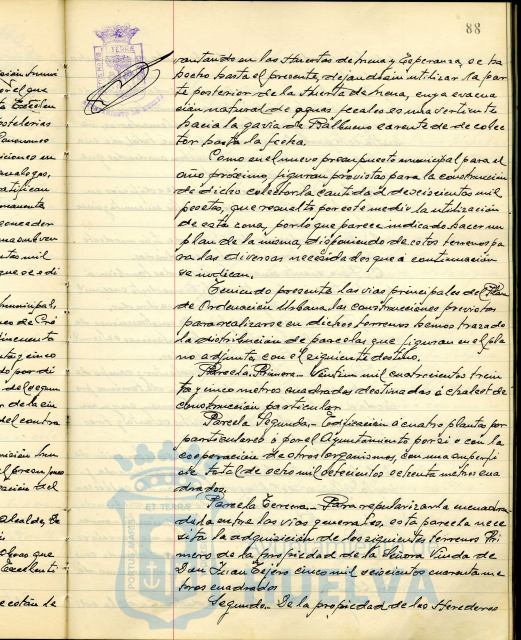 88
vantando en las Huertas de Mena y Esperanza, se ha
hecho hasta el presente, dejando sin utilizar la par
te posterior de la Huerta de Mena, cuya evacua
ción natural de aguas fecales es una vertiente
hacia la gavia de Balbueno carente de de colec
tor hasta la fecha.
Como en el nuevo presupuesto municipal para el
año próximo, figuran provistas para la construcción
de dicho colector la cantidad de seiscientas mil
pesetas, que resuelto por este medio la utilización
de esta zona, por lo que parece indicado hacer un
plan de la misma, disponiendo de estos terrenos pa
ra las diversas necesidades que a continuación
se indican.
Teniendo presente las vias principales del Plan
de Ordenación Urbana, las construcciones previstas
para realizarse en dichos terrenos hemos trazado
la distribución de parcelas que figuran en el pla
no adjunto con el siguiente destino.
Parcela Primera.- Veintiun mil cuatrocientos trein
ta y cinco metros cuadrados destinados á chalest de
construcción particular
Parcela Segunda.- Edificación á cuatro plantas por
particulares ó por el Ayuntamiento por si ó con la
cooperación de otros organismos, con una superfi
cie total de ocho mil doscientos ochenta metros cua
drados.
Parcela Tercera.- Para regularizar la encuadra
da la entre las vias generales, esta parcela nece
sita la adquisición de los siguientes terrenos Pri
mero de la propiedad de la Señora Viuda de
Don Juan Tejero cinco mil seiscientos cuarenta me
tros cuadrados
Segundo.- De la propiedad de los Herederos